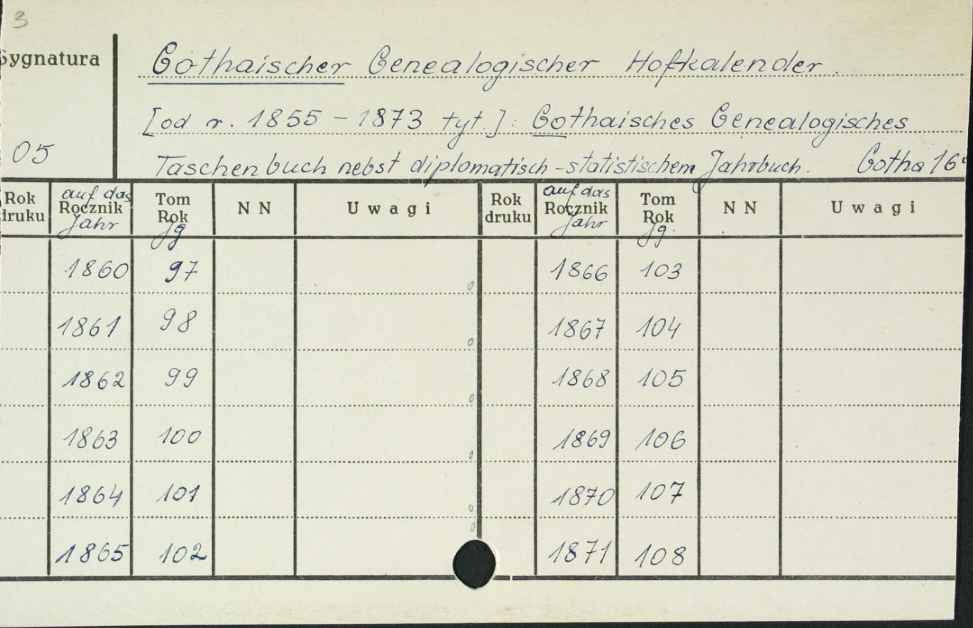 3
Sygnatura
Gothaischer Genealogischer Hofkalender.
[od r. 1855 - 1873 tyt]: Gothaisches Genealogisches
05
Taschenbuch nebst diplomatisch-statistischem Jahrbuch. Gotha 16°
Rok druku auf das Rocznik Jahr Tom Rok Jg. NN Uwagi Rok druku auf das Rocznik Jahr Tom Rok Jg. NN Uwagi
1860 97 1866 103
1861 98 1867 104
1862 99 1868 105
1863 100 1869 106
1864 101 1870 107
1865 102 1871 108